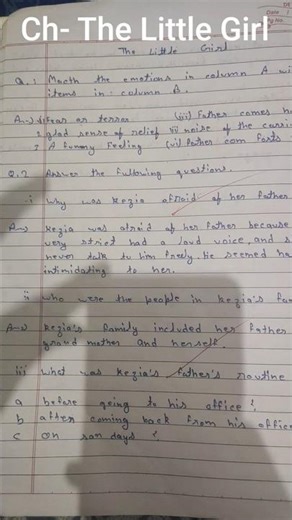 Ch- The Little Girl
The Little Girl
Q.1 Macth the emotions in column A wi
items in column B.
Ans) Fear or terror (iii) Father comes h
2 glad sense of relief noise of the carri
3 A funny feeling (vii) Father com forts
Q.2 Answer the following question.
i Why was Kezia afraid of her father
Kezia was afrid of her father because
very strict had a loud voice, and s
never talk to him freely. He seemed ha
intimidating to her.
ii who were the people in Kezia's fa
Ans) Kezia's family included her father
grand mother and herself.
iii what was Kezia's father's routine
a before going to his office?
b after coming back from his office
c on sundays ?